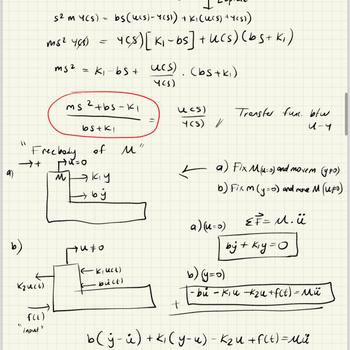 Laplace
s² m Y(s) = bs(U(s)-Y(s)) + K₁(U(s)+Y(s))
ms² Y(s) = Y(s)[K₁-bs] + U(s)(bs+K₁)
ms² = K₁-bs + U(s)/Y(s) . (bs+K₁)
ms²+bs-K₁ / bs+K₁ = U(s)/Y(s) // Transfer func. b/w U-Y
"Freebody of M"
a) → + u=0
M K₁y
bẏ
a) Fix M(u=0) and move m (y≠0)
b) Fix m (y=0) and move M (u≠0)
a) (u=0) ΣF = M.ü
bẏ + K₁y = 0
b) u≠0
K₂u(t) K₁u(t)
bu̇(t)
f(t)
"input"
b) (y=0)
-bu̇ - K₁u - K₂u + f(t) = Mü
+
b(ẏ-u̇) + K₁(y-u) - K₂u + f(t) = Mü